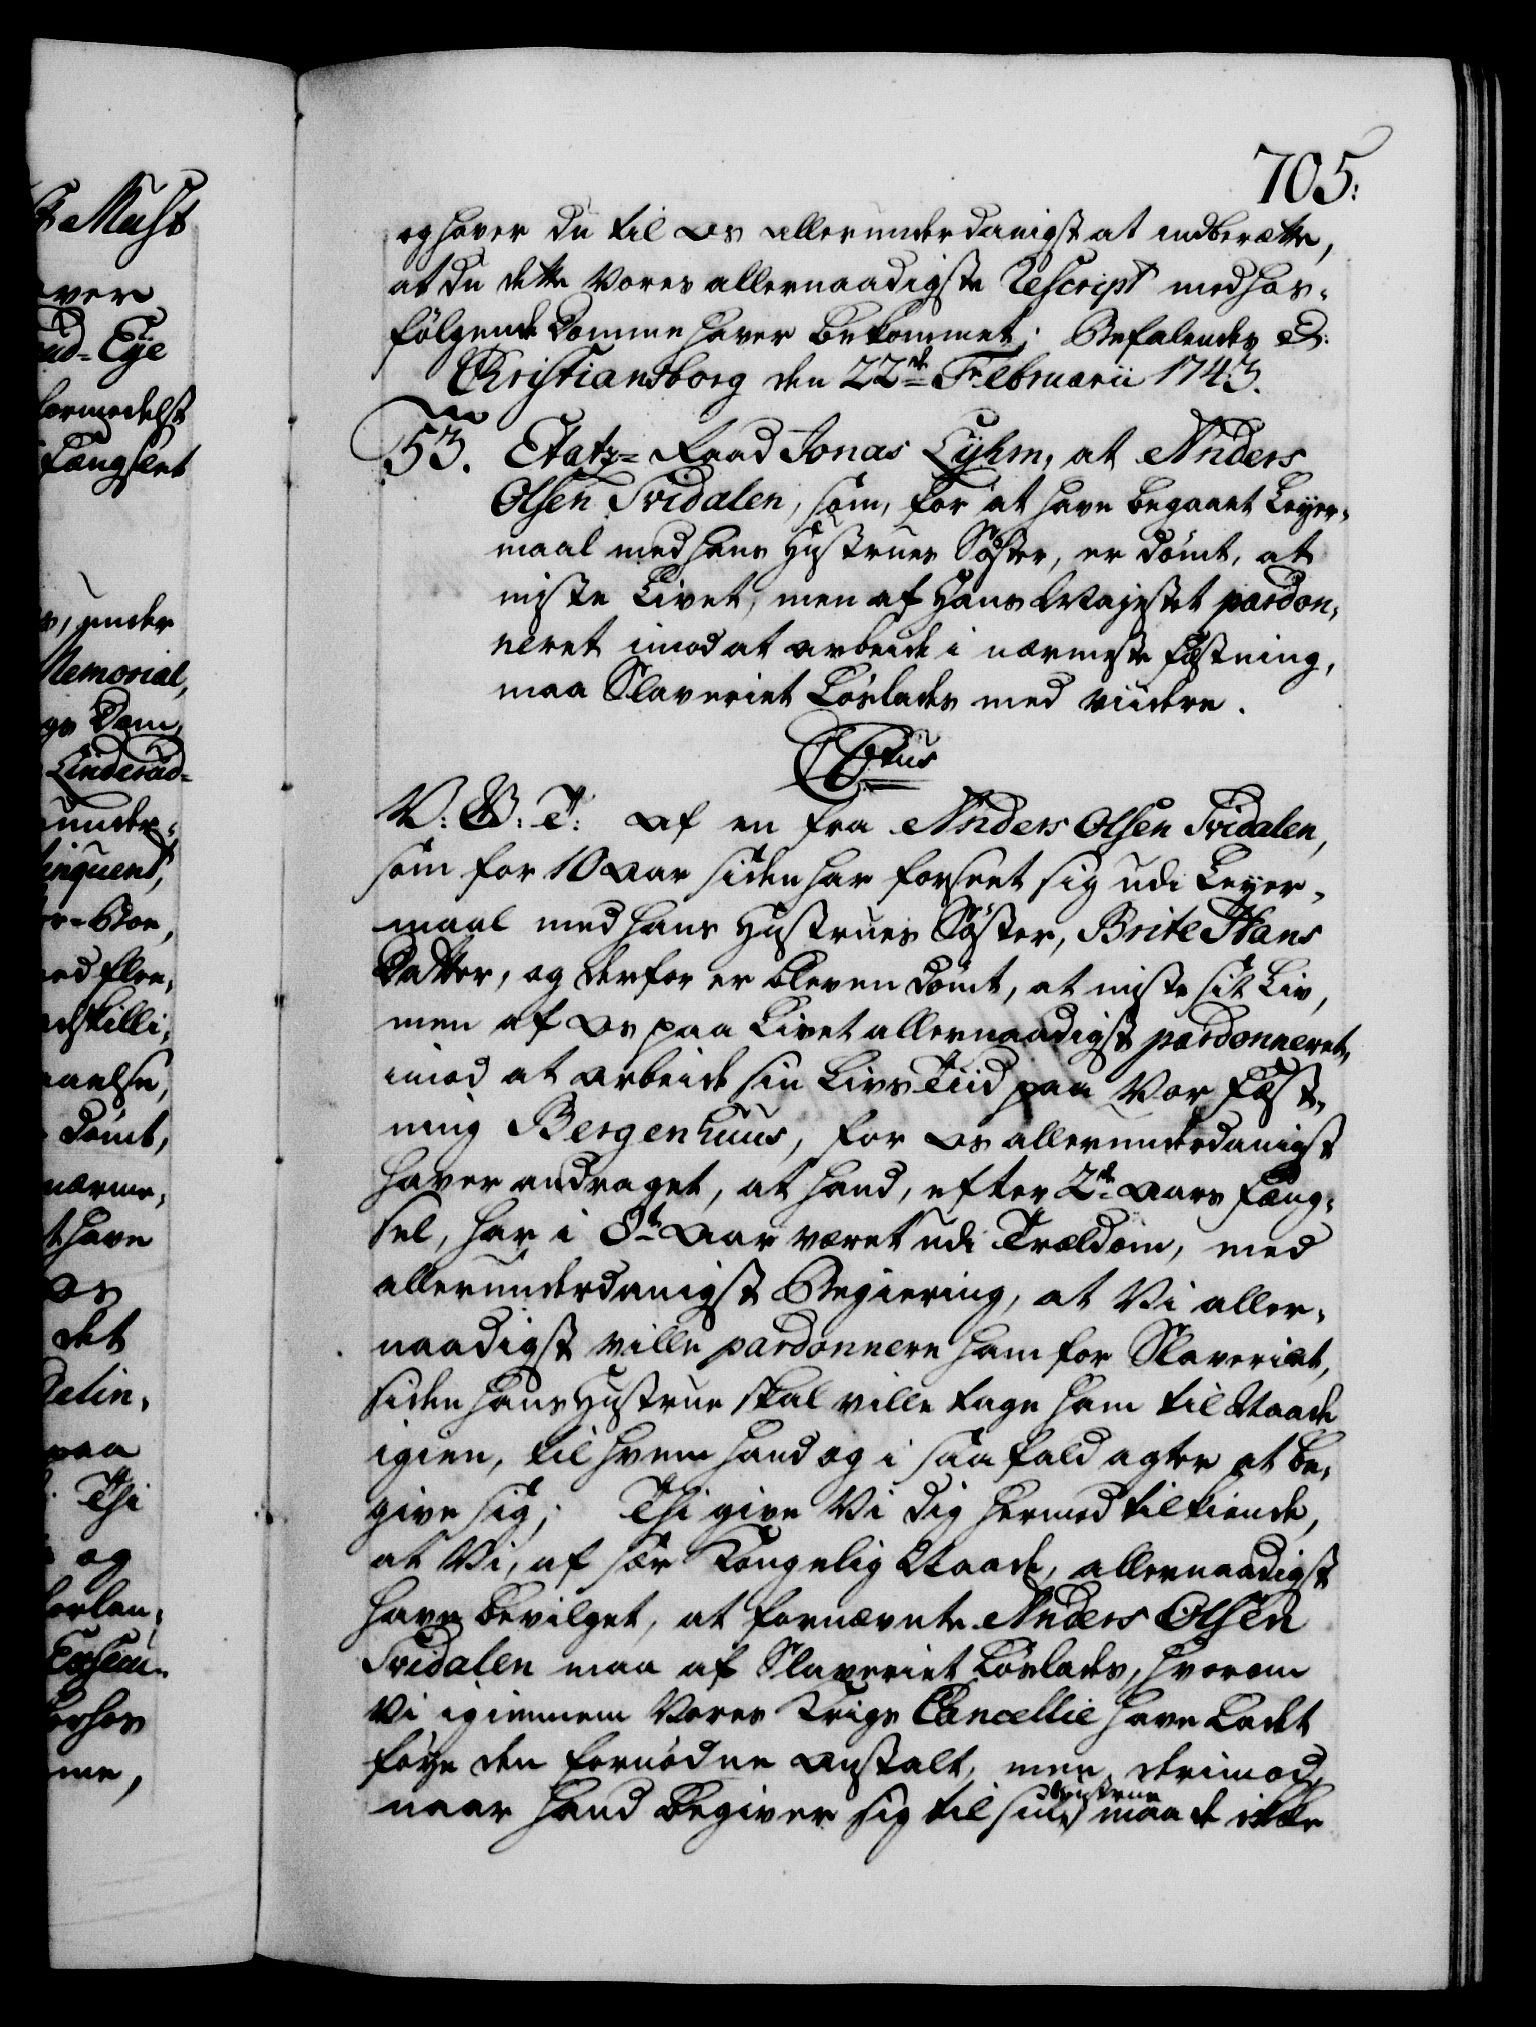 705:
og haver du til Os allerunderdanigst at indberette,
at du dette Vores allernaadigste Rescript med hos-
følgende Domme haver bekommet; Befalendes &:
Christiansborg den 22de Februarii 1743.
53. Etatz-Raad Jonas Lyhm, at Anders
Olsen Tvidalen, som, for at have begaaet Leyer-
maal med hans Hustrues Søster, er dømt, at
miste Livet, men af Hans Majestet pardon-
neret imod at arbeide i nærmeste Fæstning,
maa Slaveriet Løslades med viidere.
V: G: T: Af en fra Anders Olsen Tvidalen,
som for 10 Aar siden har forseet sig udi Leyer-
maal med hans Hustrues Søster, Brite Hans
Datter, og derfor er bleven dømt, at miste sit Liv,
men af Os paa Livet allernaadigst pardonneret,
imod at arbeide sin Livs Tiid paa Vor Fæst-
ning Bergenhuus, for Os allerunderdanigst
haver andraget, at hand, efter 2de Aars Fæng-
sel, har i 8te Aar været udi Trældom, med
allerunderdanigst Begiering, at Vi aller-
naadigst ville pardonnere ham for Slaveriet,
siden hans Hustrue skal ville tage ham til Naade
igien, til hvem hand og i saa fald agter at be-
give sig; Thi give Vi dig hermed tilkiende,
at Vi, af sær Kongelig Naade, allernaadigst
have bevilget, at fornævnte Anders Olsen
Tvidalen maa af Slaveriet Løslades, hvorom
Vi igiennem Vores Krigs Cancellie have Ladet
føye den fornødne Anstalt, men derimod,
naar hand begiver sig til sin Hustrue maa de ikke